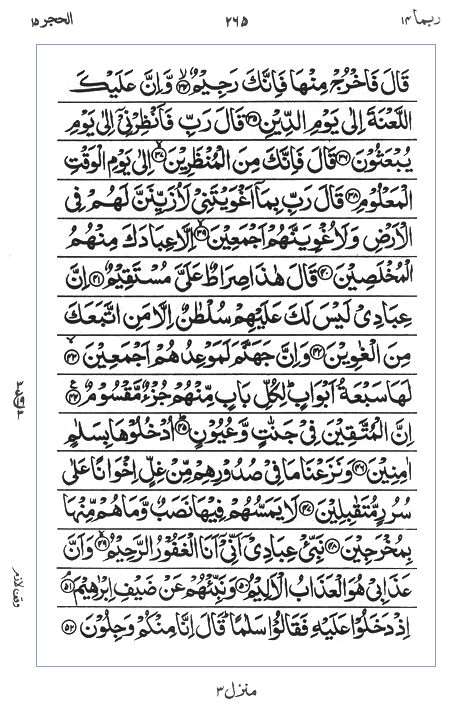 ربما ١٤ ٢٦٥ الحجر ١٥
قَالَ فَاخْرُجْ مِنْهَا فَاِنَّكَ رَجِيْمٌ ۙ﴿٣٤﴾ وَّاِنَّ عَلَيْكَ
اللَّعْنَةَ اِلٰى يَوْمِ الدِّيْنِ ﴿٣٥﴾ قَالَ رَبِّ فَاَنْظِرْنِيْۤ اِلٰى يَوْمِ
يُبْعَثُوْنَ ﴿٣٦﴾ قَالَ فَاِنَّكَ مِنَ الْمُنْظَرِيْنَ ۙ﴿٣٧﴾ اِلٰى يَوْمِ الْوَقْتِ
الْمَعْلُوْمِ ﴿٣٨﴾ قَالَ رَبِّ بِمَاۤ اَغْوَيْتَنِيْ لَاُزَيِّنَنَّ لَهُمْ فِي
الْاَرْضِ وَلَاُغْوِيَنَّهُمْ اَجْمَعِيْنَ ۙ﴿٣٩﴾ اِلَّا عِبَادَكَ مِنْهُمُ
الْمُخْلَصِيْنَ ﴿٤٠﴾ قَالَ هٰذَا صِرَاطٌ عَلَيَّ مُسْتَقِيْمٌ ﴿٤١﴾ اِنَّ
عِبَادِيْ لَيْسَ لَكَ عَلَيْهِمْ سُلْطٰنٌ اِلَّا مَنِ اتَّبَعَكَ
مِنَ الْغٰوِيْنَ ﴿٤٢﴾ وَاِنَّ جَهَنَّمَ لَمَوْعِدُهُمْ اَجْمَعِيْنَ ۙ﴿٤٣﴾
لَهَا سَبْعَةُ اَبْوَابٍ ؕ لِكُلِّ بَابٍ مِّنْهُمْ جُزْءٌ مَّقْسُوْمٌ ﴿٤٤﴾ ع
اِنَّ الْمُتَّقِيْنَ فِيْ جَنّٰتٍ وَّعُيُوْنٍ ؕ﴿٤٥﴾ اُدْخُلُوْهَا بِسَلٰمٍ
اٰمِنِيْنَ ﴿٤٦﴾ وَنَزَعْنَا مَا فِيْ صُدُوْرِهِمْ مِّنْ غِلٍّ اِخْوَانًا عَلٰى
سُرُرٍ مُّتَقٰبِلِيْنَ ﴿٤٧﴾ لَا يَمَسُّهُمْ فِيْهَا نَصَبٌ وَّمَا هُمْ مِّنْهَا
بِمُخْرَجِيْنَ ﴿٤٨﴾ نَبِّئْ عِبَادِيْۤ اَنِّيْۤ اَنَا الْغَفُوْرُ الرَّحِيْمُ ۙ﴿٤٩﴾ وَاَنَّ
عَذَابِيْ هُوَ الْعَذَابُ الْاَلِيْمُ ﴿٥٠﴾ وَنَبِّئْهُمْ عَنْ ضَيْفِ اِبْرٰهِيْمَ ۘ﴿٥١﴾
وقف لازم
اِذْ دَخَلُوْا عَلَيْهِ فَقَالُوْا سَلٰمًا ؕ قَالَ اِنَّا مِنْكُمْ وَجِلُوْنَ ﴿٥٢﴾
منزل ٣